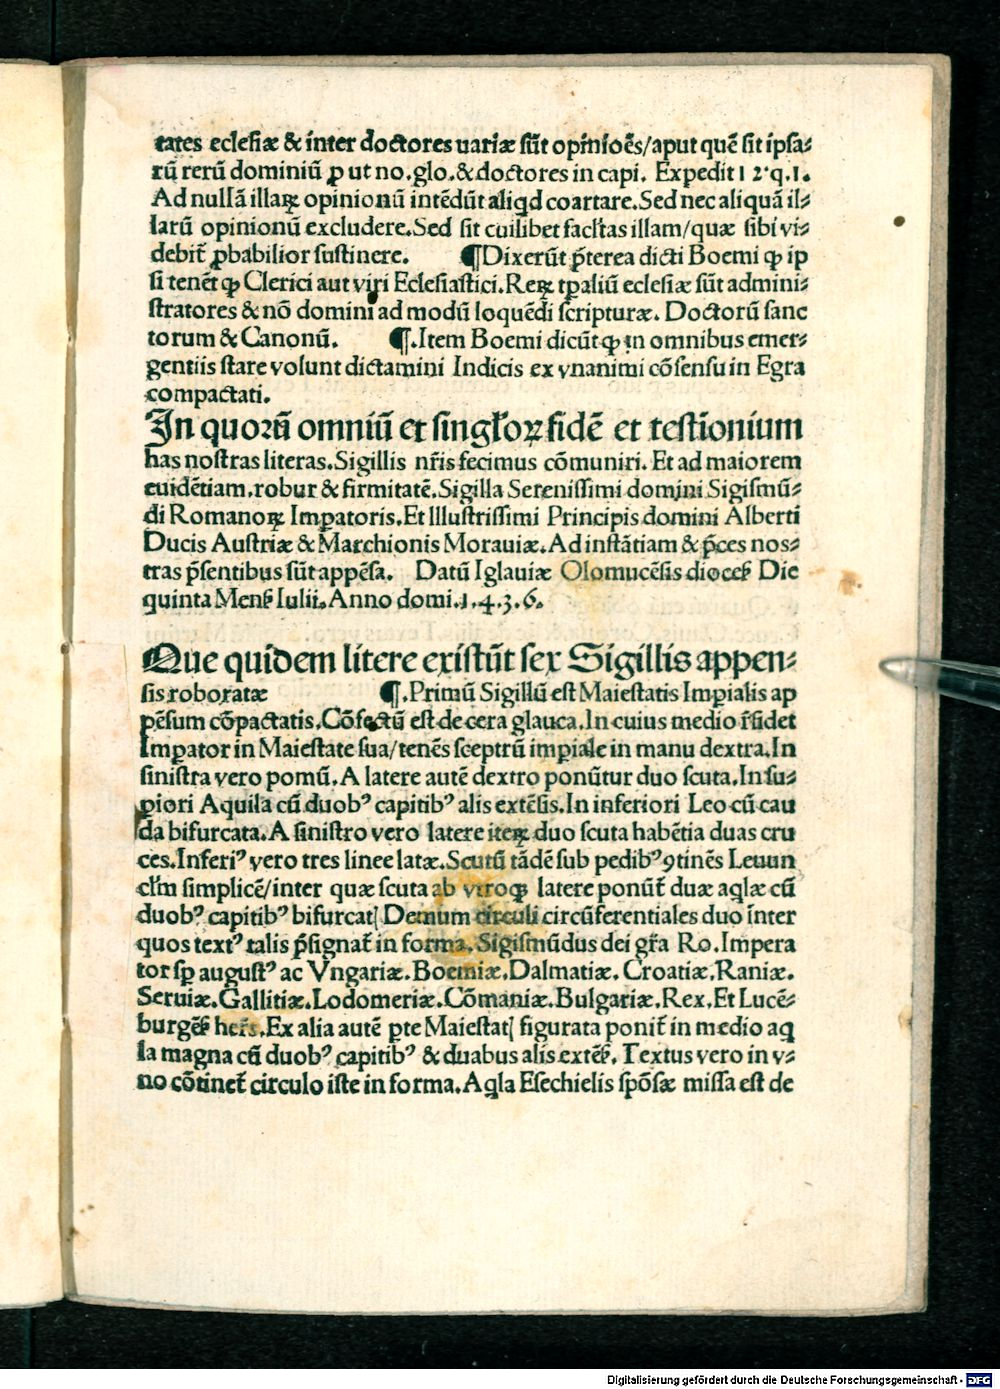 tates eclesiæ & inter doctores uariæ sūt opinioēs/aput quē sit ipsa⸗
rū rerū dominiū ꝓ ut no.glo.&doctores in capi. Expedit 12.q.1.
Ad nullā illaꝝ opinionū intēdūt aliqd coartare.Sed nec aliquā il⸗
larū opinionū excludere.Sed sit cuilibet facl̄tas illam/quæ sibi vi⸗
debit̄ ꝓbabilior sustinere. ¶Dixerūt p̄terea dicti Boemi ꝙ ip
si tenēt ꝙ Clerici aut viri Eclesiastici.Reꝝ tꝑaliū eclesiæ sūt admini⸗
stratores & nō domini ad modū loquēdi scripturæ. Doctorū sanc
torum & Canonū. ¶.Item Boemi dicūt ꝙ in omnibus emer⸗
gentiis stare volunt dictamini Indicis ex vnanimi cōsensu in Egra
compactati.
In quorū omniū et singl̄oꝝ fidē et testionium
has nostras literas.Sigillis nr̄is fecimus cōmuniri. Et ad maiorem
euidētiam.robur & firmitatē.Sigilla Serenissimi domini Sigismū⸗
di Romanoꝝ Imꝑatoris.Et Illustrissimi Principis domini Alberti
Ducis Austriæ & Marchionis Morauiæ.Ad instātiam & p̄ces nos⸗
tras p̄sentibus sūt appēsa. Datū Iglauiæ Olomucēsis dioceß Die
quinta Menß Iulii.Anno domi.1.4.3.6.
Que quidem litere existūt sex Sigillis appen⸗
sis roboratæ ¶.Primū Sigillū est Maiestatis Imꝑialis ap
pēsum cōpactatis.Cōfectū est de cera glauca.In cuius medio r̄sidet
Imꝑator in Maiestate sua/tenēs sceptrū imꝑiale in manu dextra.In
sinistra vero pomū.A latere autē dextro ponūtur duo scuta.In su⸗
ꝑiori Aquila cū duobꝰ capitibꝰ alis extēsis.In inferiori Leo cū cau
da bifurcata.A sinistro vero latere iteꝝ duo scuta habētia duas cru
ces.Inferiꝰ vero tres linee latæ.Scutū tādē sub pedibꝰ ꝯtinēs Leuun
cl̄m simplicē/inter quæ scuta ab vtroqꝫ latere ponūt̄ duæ aq̄læ cū
duobꝰ capitibꝰ bifurcat| Demum circuli circūferentiales duo inter
quos textꝰ talis p̄signat̄ in forma.Sigismūdus dei gr̄a Ro.Impera
tor sꝑ augustꝰ ac Vngariæ.Boemiæ.Dalmatiæ.Croatiæ.Raniæ.
Seruiæ.Gallitiæ.Lodomeriæ.Cōmaniæ.Bulgariæ.Rex.Et Lucē⸗
burgēß her̄s.Ex alia autē ꝑte Maiestat| figurata ponit̄ in medio aq
la magna cū duobꝰ capitibꝰ & duabus alis extēß. Textus vero in v⸗
no cōtinet̄ circulo iste in forma.Aq̄la Esechielis spōsæ missa est de
Digitalisierung gefördert durch die Deutsche Forschungsgemeinschaft - DFG